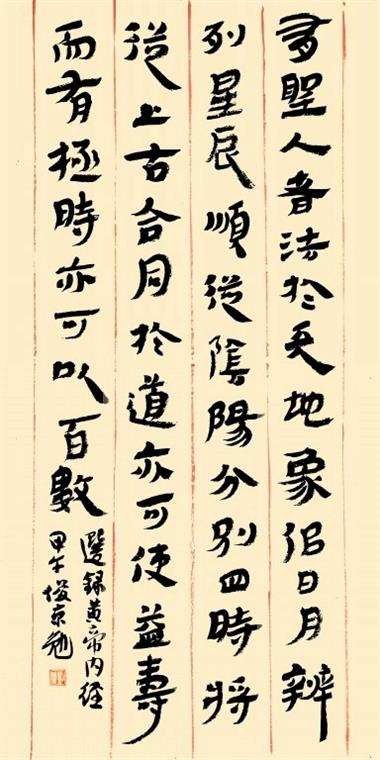 有聖人者法於天地象似日月辨
列星辰順從陰陽分別四時將
從上古合同於道亦可使益壽
而有極時亦可以百數
選錄黃帝內經
甲午俊京